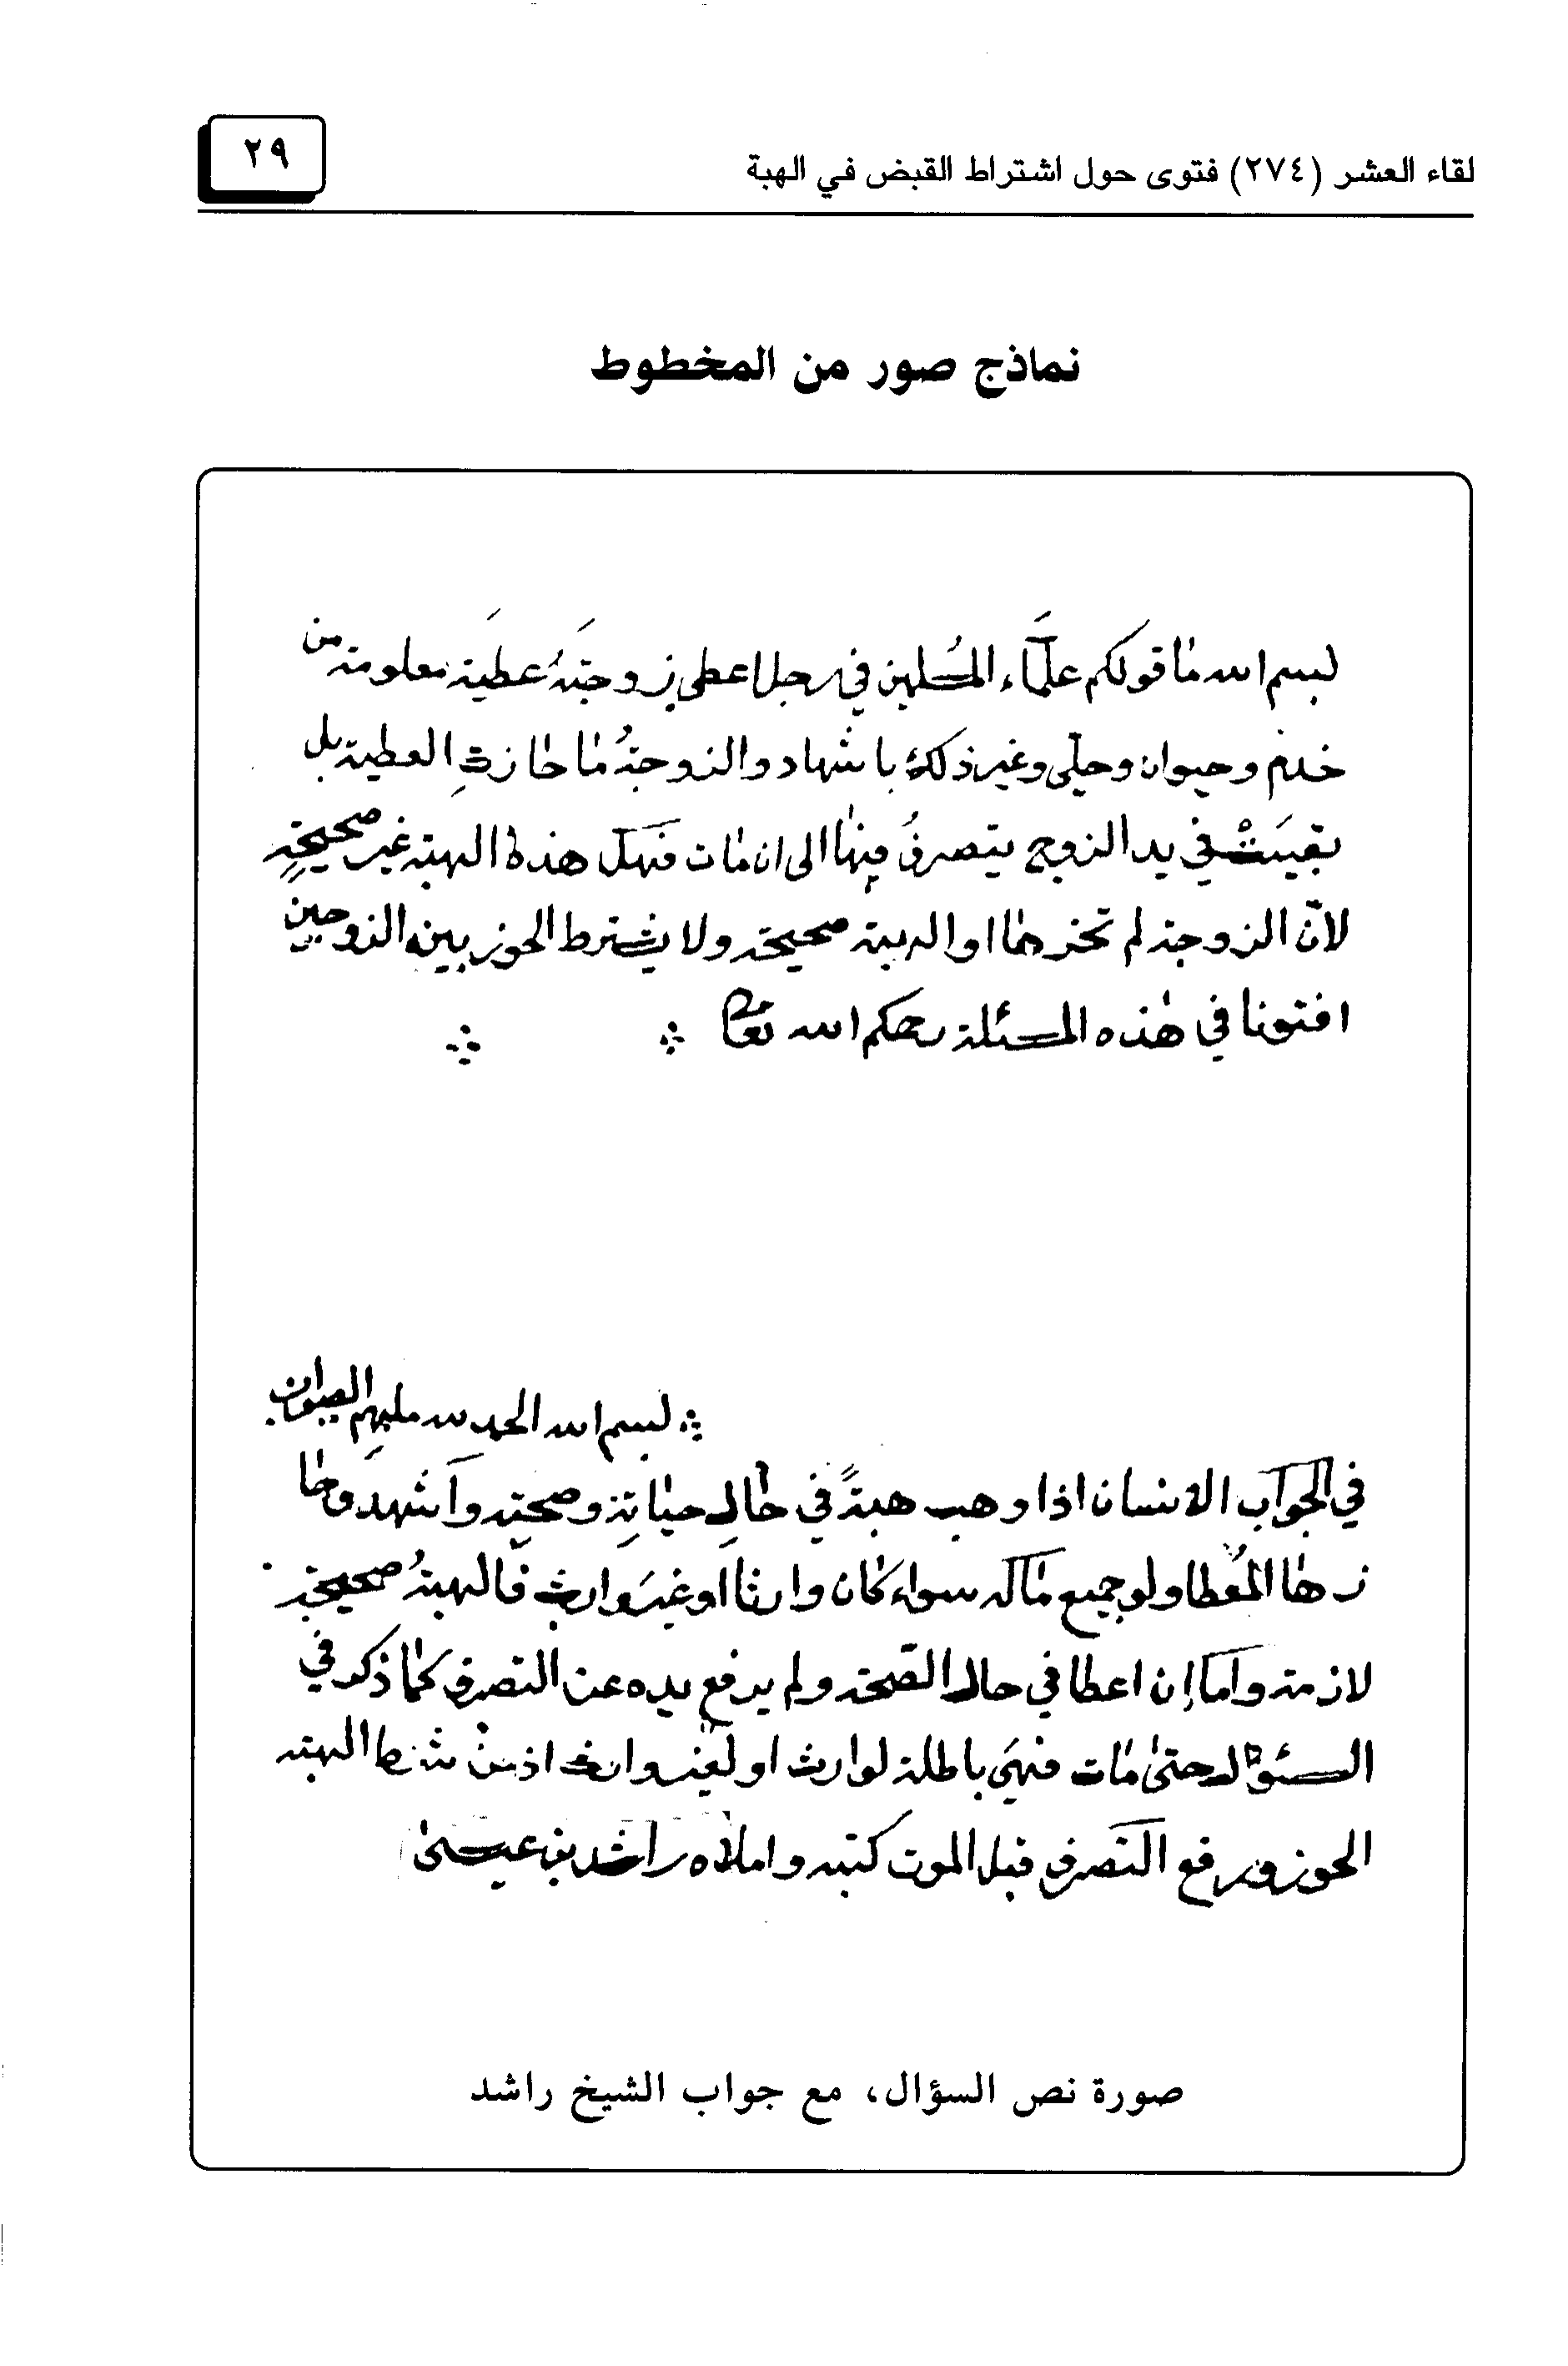 لقاء العشر (٢٧٤) فتوى حول اشتراط القبض في الهبة
٢٩
نماذج صور من المخطوط
بسم الله ما قولكم علماء المسلمين في رجل اعطى زوجته عطية معلومة من
خدم وحيوان وحلي وغير ذلك باشهاد والزوجة ما حازت العطية بل
بقيت في يد الزوج يتصرف فيها الى ان مات فهل هذه الهبة غير صحيحة
لانّ الزوجة لم تحزها او الهبة صحيحة ولا يشترط الحوز بين الزوجين
افتونا في هذه المسئلة رحمكم الله تعالى
بسم الله الحمد لله ملهم الصواب
في الجواب الانسان اذا وهب هبةً في حال حياته وصحته واشهد وحا
زها المعطا ولو جميع ماله سواء كان وارثا او غير وارث فالهبة صحيحة
لازمة واما إن اعطا في حال الصحة ولم يرفع يده عن التصرف كما ذكر في
السئوال حتى مات فهي باطلة لوارث او لغير وارث اذ من شرط الهبة
الحوز ورفع التصرف قبل الموت كتبه واملاه راشد بن عيسى
صورة نص السؤال، مع جواب الشيخ راشد